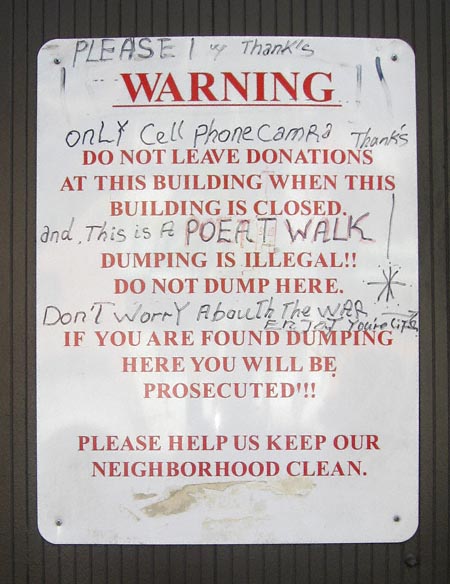 PLEASE ! Thank's
WARNING
onLY Cell phone camRa Thank's
DO NOT LEAVE DONATIONS
AT THIS BUILDING WHEN THIS
BUILDING IS CLOSED.
and, This is A POEAT WALK
DUMPING IS ILLEGAL!!
DO NOT DUMP HERE.
Don'T WorrY AbouTh The WAR
EnJoY Your Life
IF YOU ARE FOUND DUMPING
HERE YOU WILL BE
PROSECUTED'!!
PLEASE HELP US KEEP OUR
NEIGHBORHOOD CLEAN.